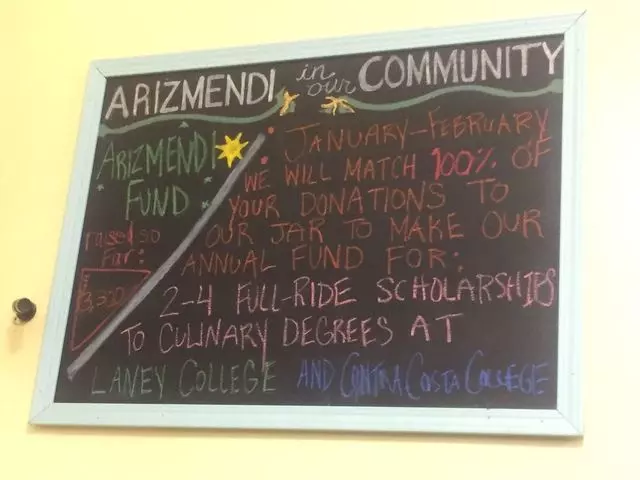 ARIZMENDI in our COMMUNITY
ARIZMENDI
FUND
raised so
far:
JANUARY-FEBRUARY
WE WILL MATCH 100% OF
YOUR DONATIONS TO
OUR JAR TO MAKE OUR
ANNUAL FUND FOR:
2-4 FULL-RIDE SCHOLARSHIPS
TO CULINARY DEGREES AT
LANEY COLLEGE AND CONTRA COSTA COLLEGE